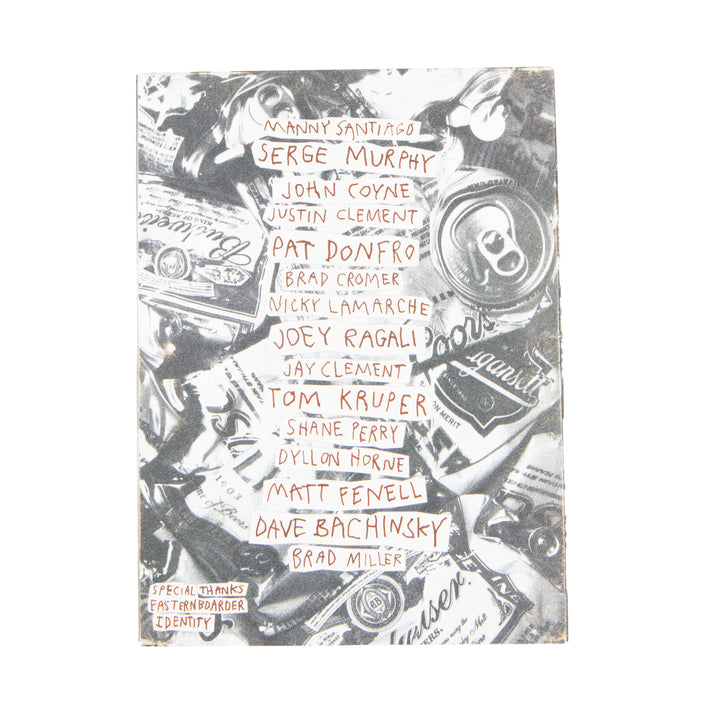 MANNY SANTIAGO
SERGE MURPHY
JOHN COYNE
JUSTIN CLEMENT
PAT DONFRO
BRAD CROMER
NICKY LAMARCHE
JOEY RAGALI
JAY CLEMENT
TOM KRUPER
SHANE PERRY
DYLLON HORNE
MATT FENELL
DAVE BACHINSKY
BRAD MILLER
SPECIAL THANKS
EASTERNBOARDER
IDENTITY
Budweis
KING OF
oors
agansett
ON MERIT
1903